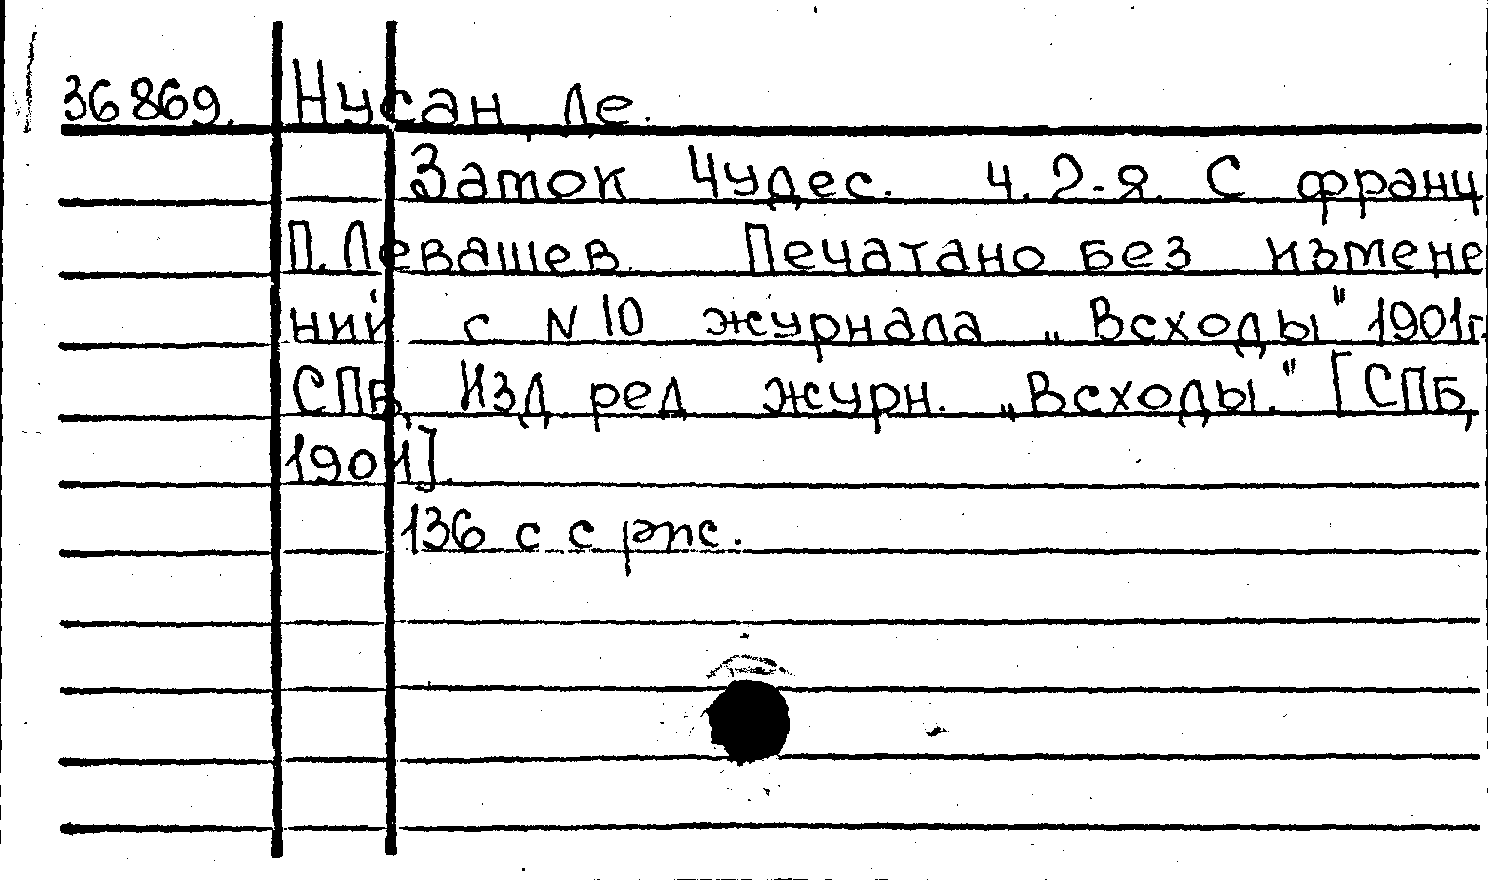 36869. Нусан, ле.
Заток Чудес. Ч. 2-я. С франц
П. Левашев. Печатано без измене
ний с N 10 журнала „Всходы" 1901г.
СПБ, Изд ред журн. „Всходы." [СПБ,
1901].
136 с с рис.